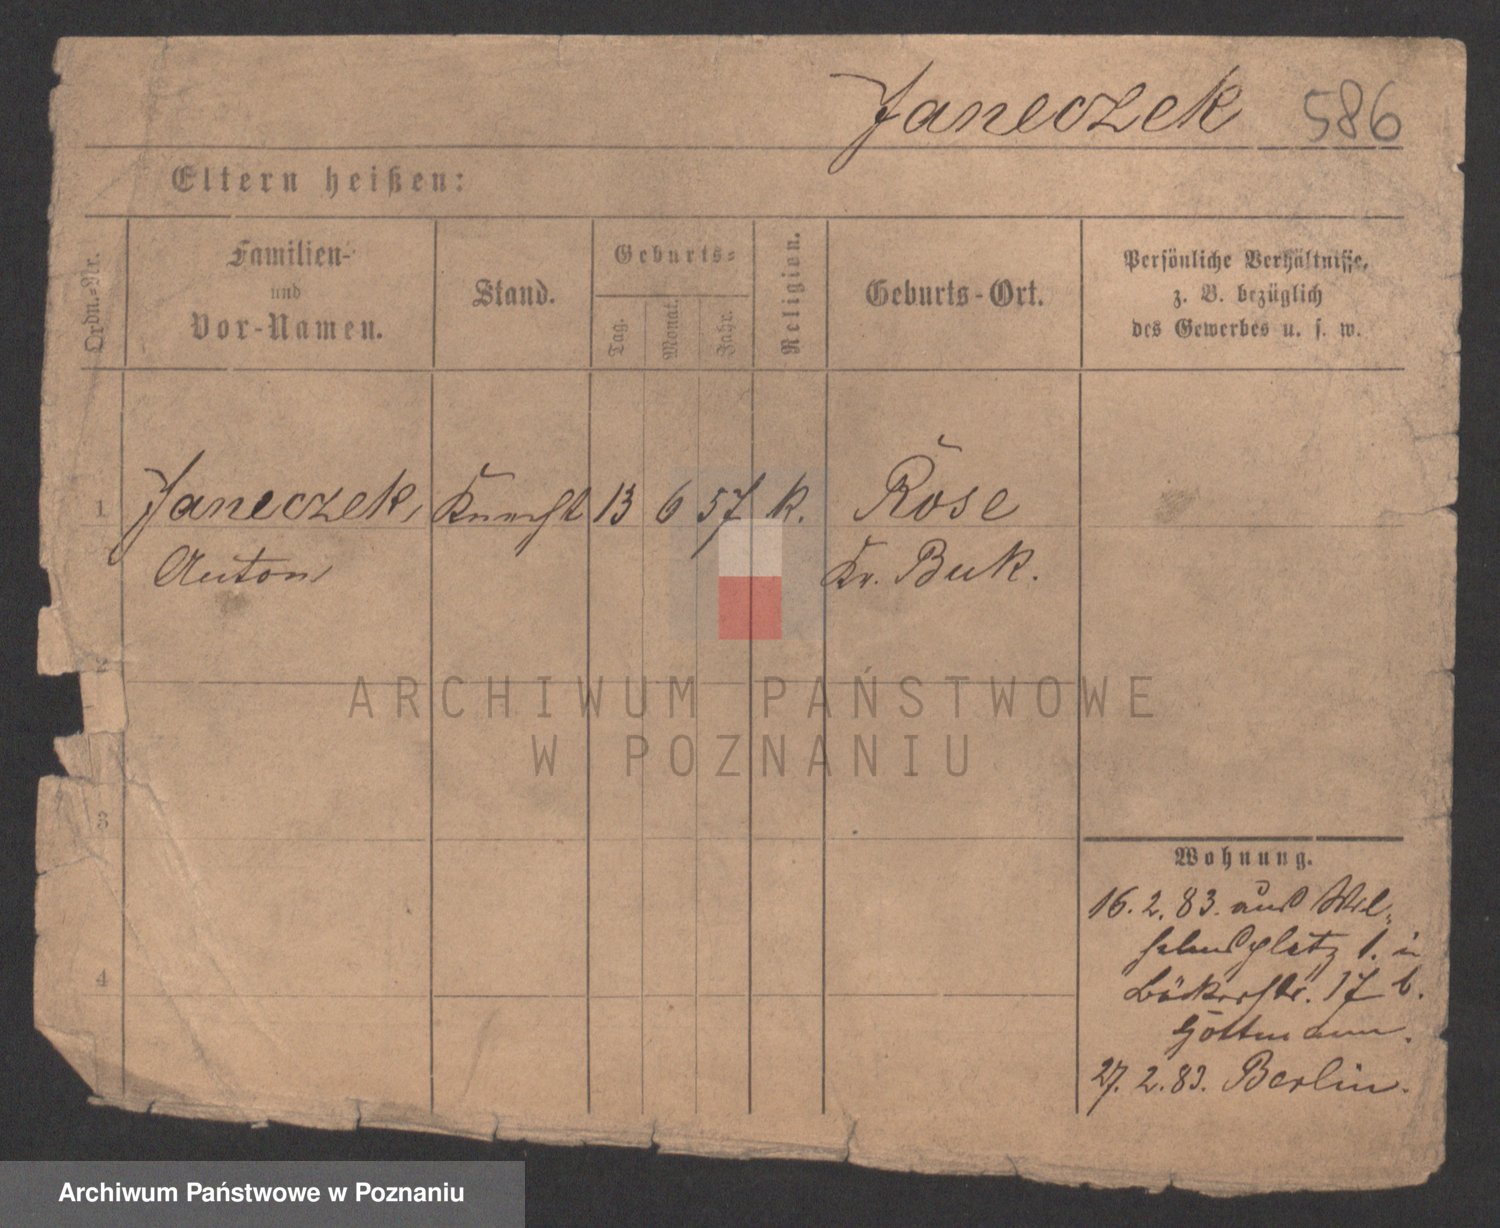 Janeczek 586
Eltern heißen:
Ordn.-Nr.
Familien-
und
Vor-Namen.
Stand.
Geburts-
Tag.
Monat.
Jahr.
Religion.
Geburts-Ort.
Persönliche Verhältnisse,
z. B. bezüglich
des Gewerbes u. s. w.
1 Janeczek, Knecht 13 6 57 k. Rose
Anton Kr. Buk.
2
3
4
Wohnung.
16. 2. 83. aus Wil-
helmsplatz 1. in
Bäckerstr. 17 b.
Göttmann.
27. 2. 83. Berlin.
ARCHIWUM PAŃSTWOWE
W POZNANIU
Archiwum Państwowe w Poznaniu